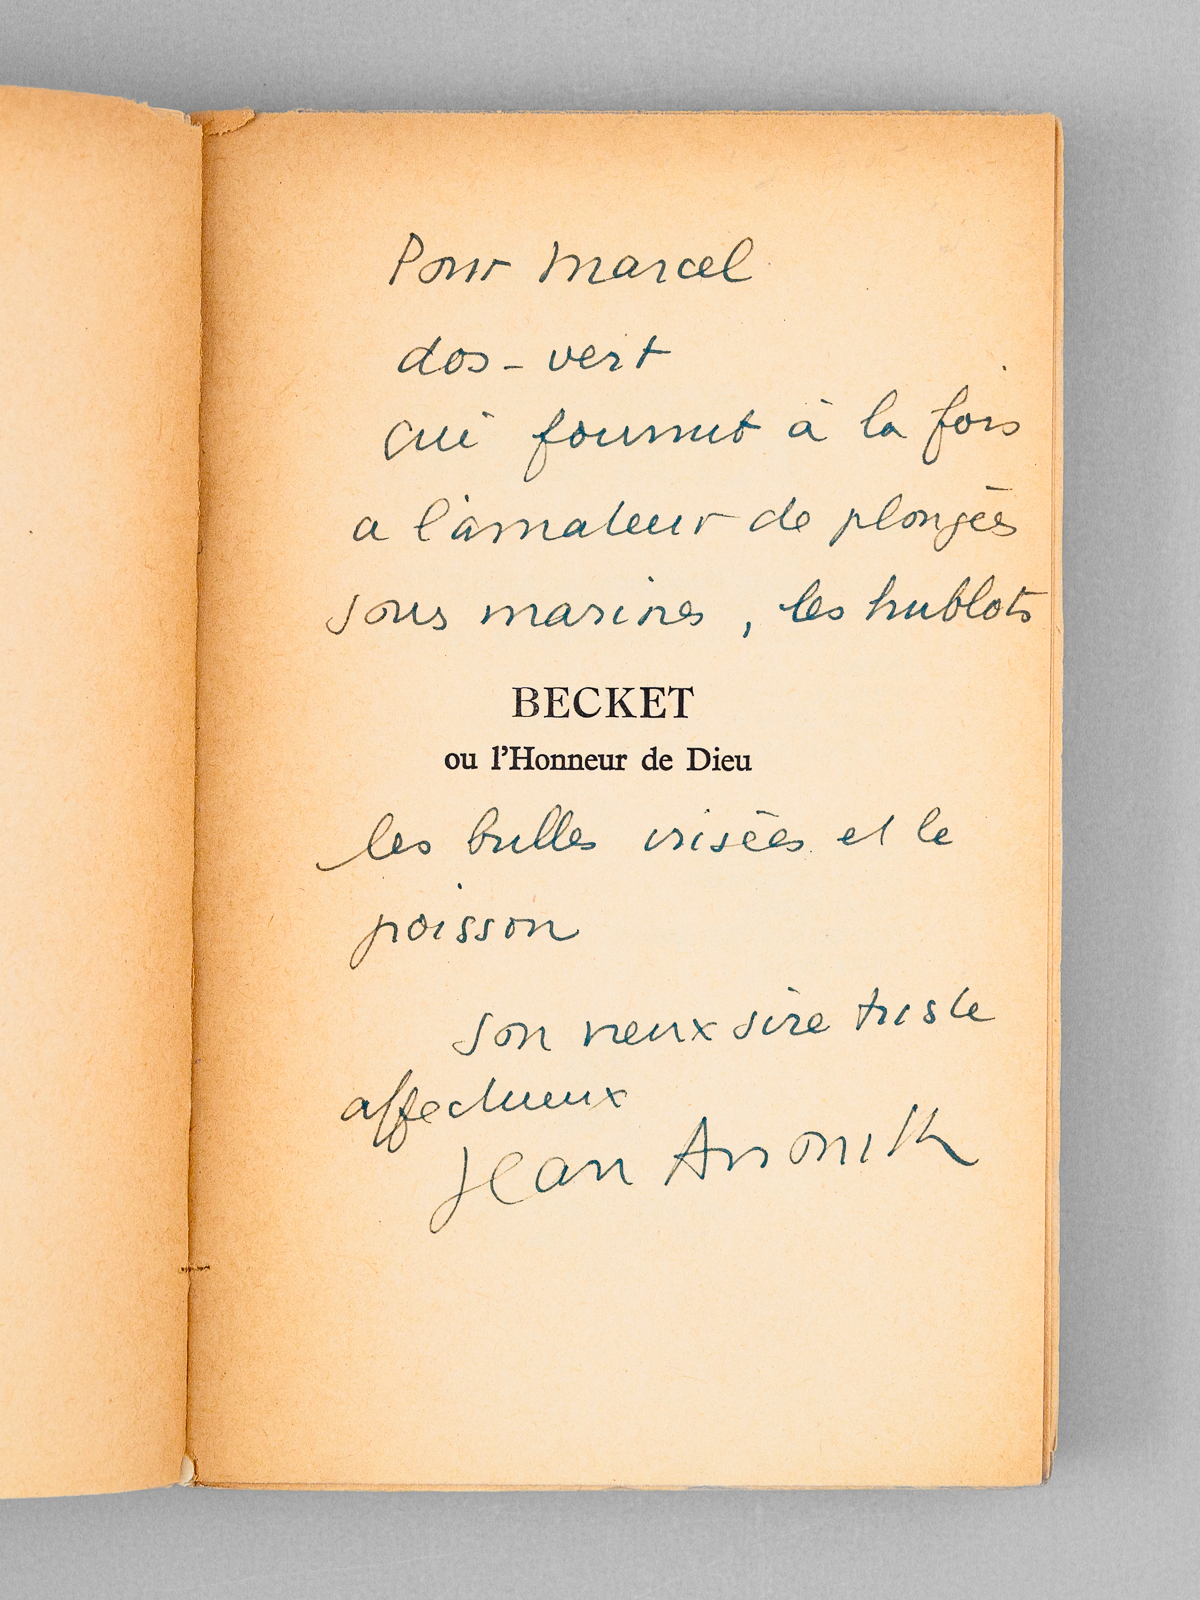 Pour Marcel
dos-vert
qui fournit à la fois
a l'amateur de plongées
sous marines, les hublots
BECKET
ou l'Honneur de Dieu
les bulles irisées et le
poisson
son vieux sire triste
affectueux
Jean Anouilh